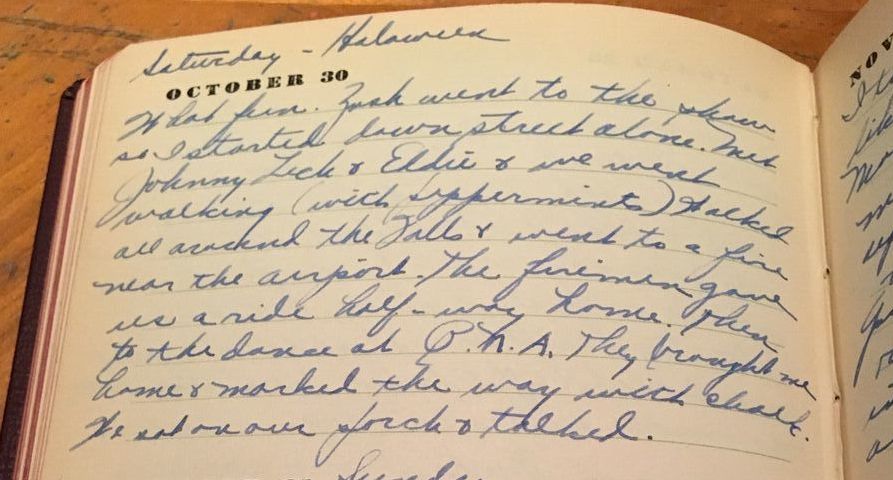 Saturday - Haloween
OCTOBER 30
What fun. Zosh went to the show
so I started down street alone. Met
Johnny Zeck & Eddie & we went
walking (with peppermints) Walked
all around the Falls & went to a fire
near the airport. The firemen gave
us a ride half-way home. Then
to the dance at P.N.A. They brought me
home & marked the way with chalk.
We sat on our porch & talked.
Sunday
NOV
I